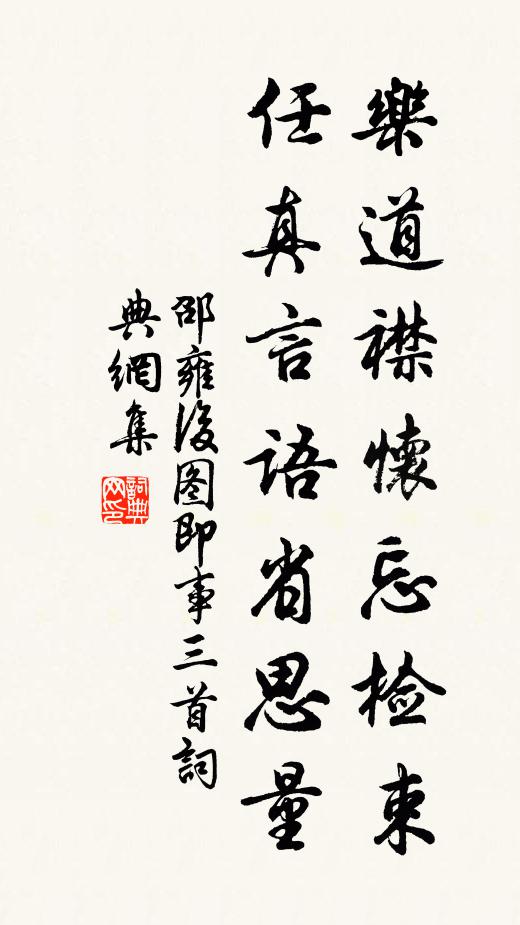 樂道襟懷忘檢束
任真言語省思量
邵雍後園即事三首詞
典網集
詞典
网印